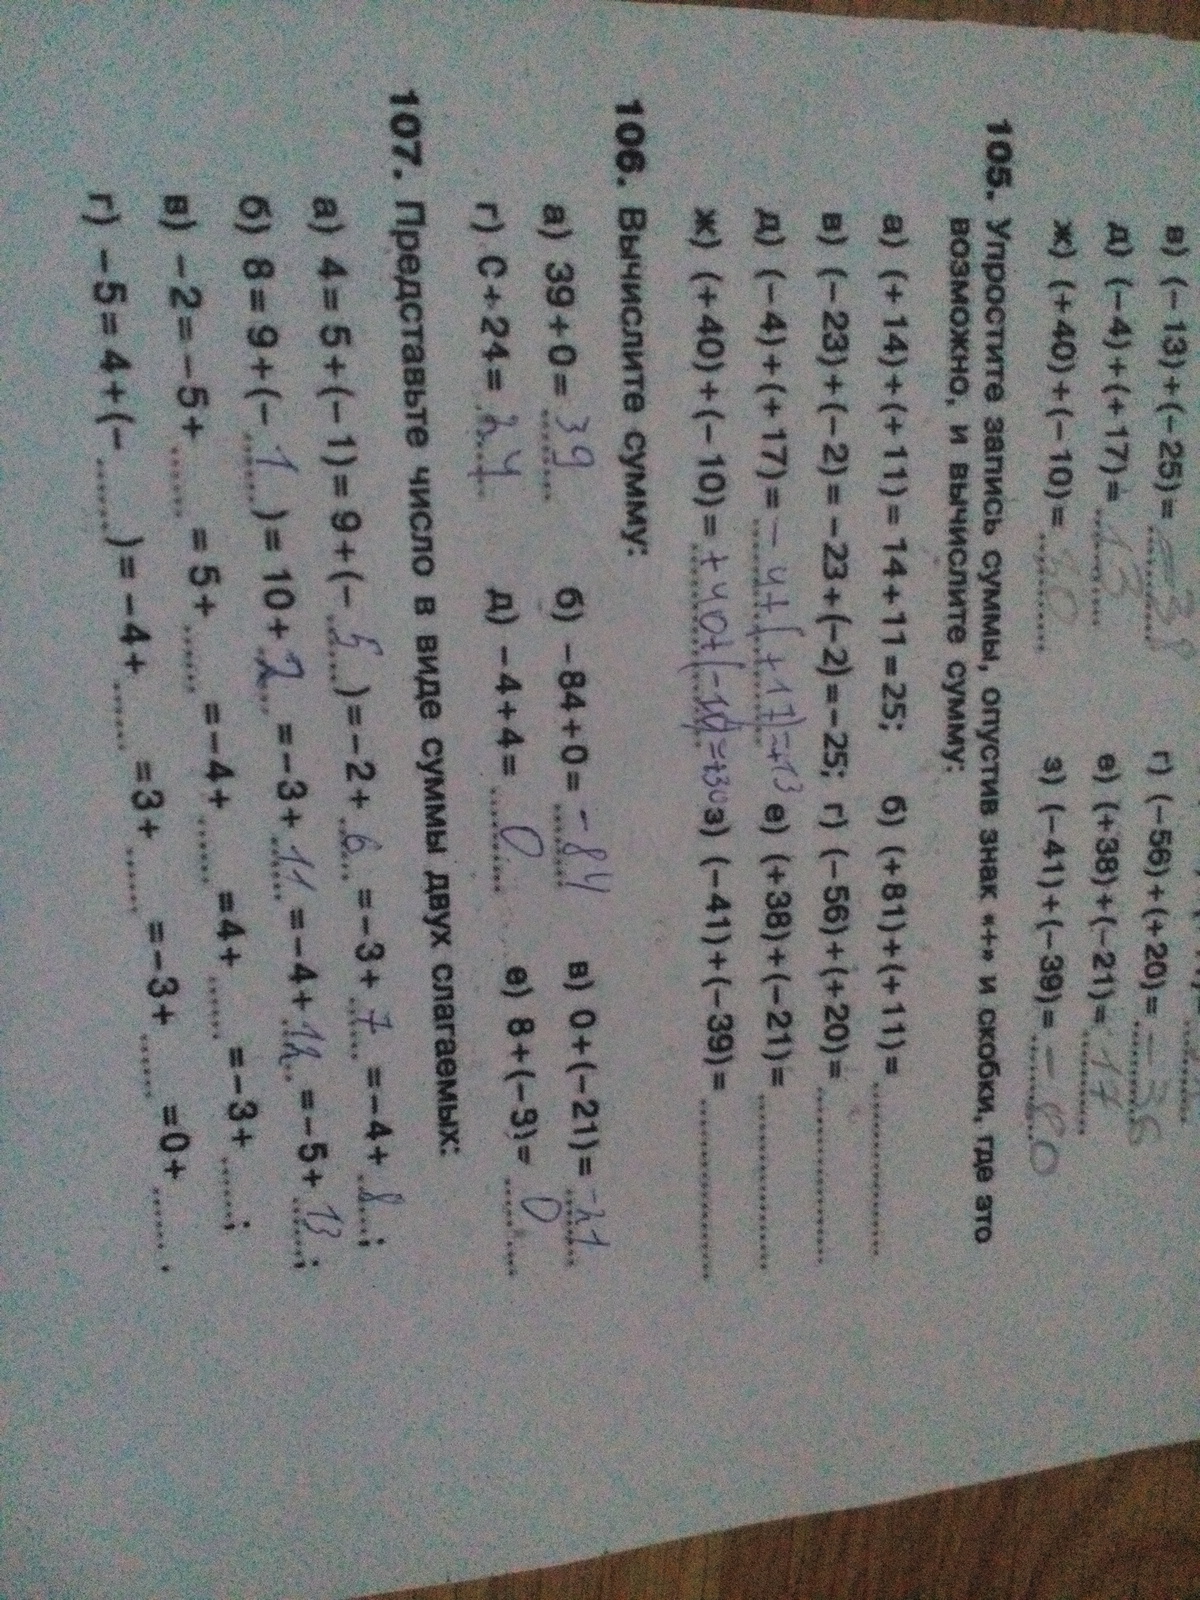 в) (−13)+(−25)= −38 г) (−56)+(+20)= −36
д) (−4)+(+17)= 13 е) (+38)+(−21)= 17
ж) (+40)+(−10)= 30 з) (−41)+(−39)= −80
105. Упростите запись суммы, опустив знак «+» и скобки, где это
возможно, и вычислите сумму:
а) (+14)+(+11)=14+11=25; б) (+81)+(+11)=
в) (−23)+(−2)=−23+(−2)=−25; г) (−56)+(+20)=
д) (−4)+(+17)= −4+(+17)=+13 е) (+38)+(−21)=
ж) (+40)+(−10)= +40+(−10)=+30 з) (−41)+(−39)=
106. Вычислите сумму:
а) 39+0= 39 б) −84+0= −84 в) 0+(−21)= −21
г) С+24= 24 д) −4+4= 0 е) 8+(−9)= 0
107. Представьте число в виде суммы двух слагаемых:
а) 4=5+(−1)=9+(− 5 )=−2+ 6 =−3+ 7 =−4+ 8 ;
б) 8=9+(− 1 )=10+ 2 =−3+ 11 =−4+ 12 =−5+ 13 ;
в) −2=−5+ =5+ =−4+ =4+ =−3+ ;
г) −5=4+(− )=−4+ =3+ =−3+ =0+ .